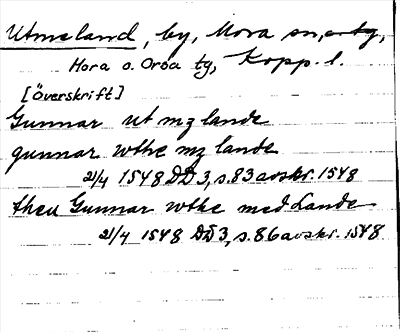 Utmeland, by, Mora sn,
Mora o. Orsa tg, Kopp. l.
[Överskrift]
Gunnar ut mz lande
gunnar wthe mz lande
21/4 1548 DD 3, s. 83 avskr. 1548
theu Gunnar wthe med Lande
21/4 1548 DD 3, s. 86 avskr. 1548